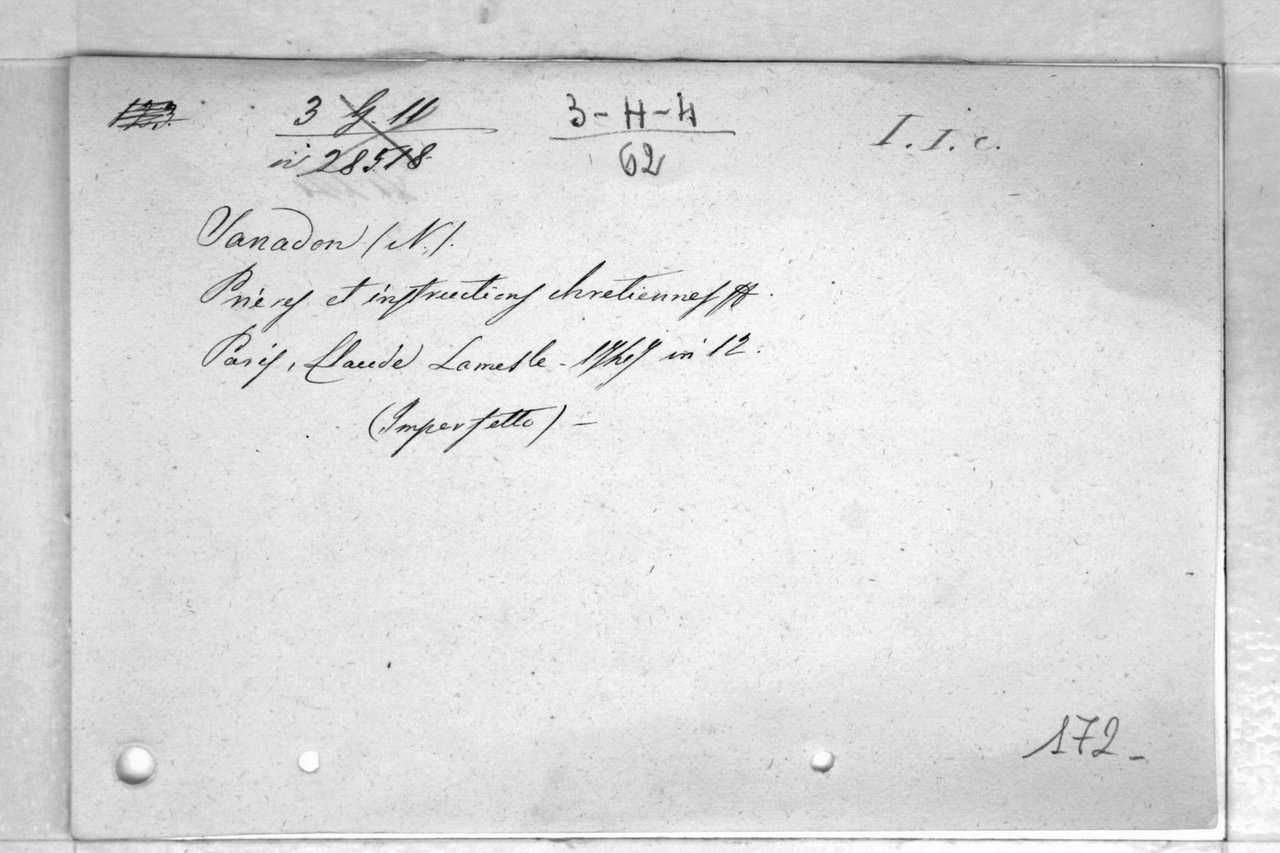 3 G. 11
in 28518
3-H-4
62
I. I. c.
Sanadon (N.).
Prières et instructions chretiennes
Paris, Claude Lamesle - 1747 in 12.
(Imperfetto) -
172 -